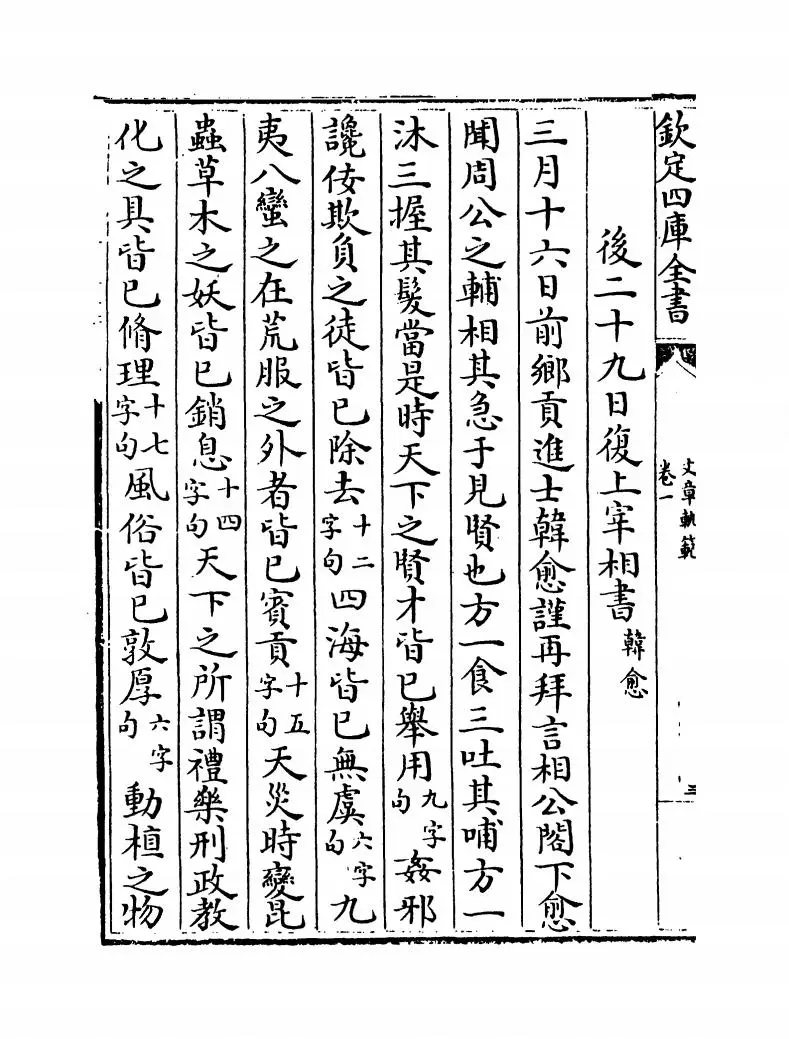 欽定四庫全書
文章軌範
卷一
三
後二十九日復上宰相書韓愈
三月十六日前鄉貢進士韓愈謹再拜言相公閤下愈
聞周公之輔相其急于見賢也方一食三吐其哺方一
沐三握其髮當是時天下之賢才皆已舉用九字句姦邪
讒佞欺負之徒皆已除去十二字句四海皆已無虞六字句九
夷八蠻之在荒服之外者皆已賓貢十五字句天災時變昆
蟲草木之妖皆已銷息十四字句天下之所謂禮樂刑政教
化之具皆已脩理十七字句風俗皆已敦厚六字句動植之物